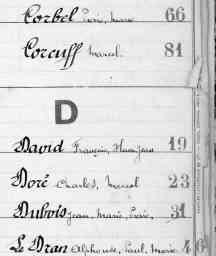 Corbel Pierre, Marie 66
Corcuff Marcel 81
D
David François, Marie 19
Doré Charles, Marcel 23
Dubois Jean, Marie, Pierre, 31
Le Dran Alphonse, Paul, Marie 46